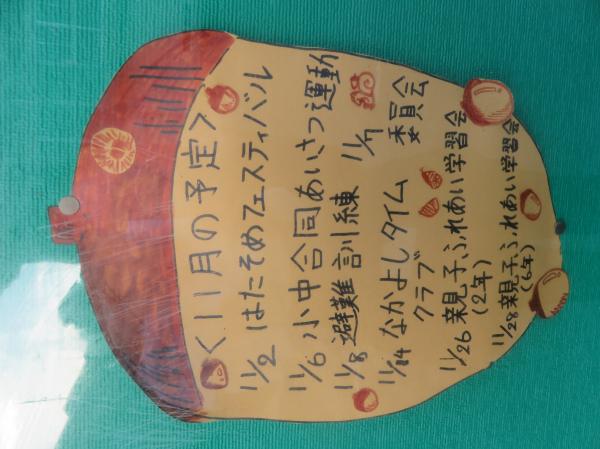 <11月の予定>
11/2 はたそめフェスティバル
11/6 小中合同あいさつ運動
11/8 避難訓練 11/7 委員会
11/14 なかよしタイム
クラブ
11/26 親子ふれあい学習会
(2年)
11/28 親子ふれあい学習会
(6年)